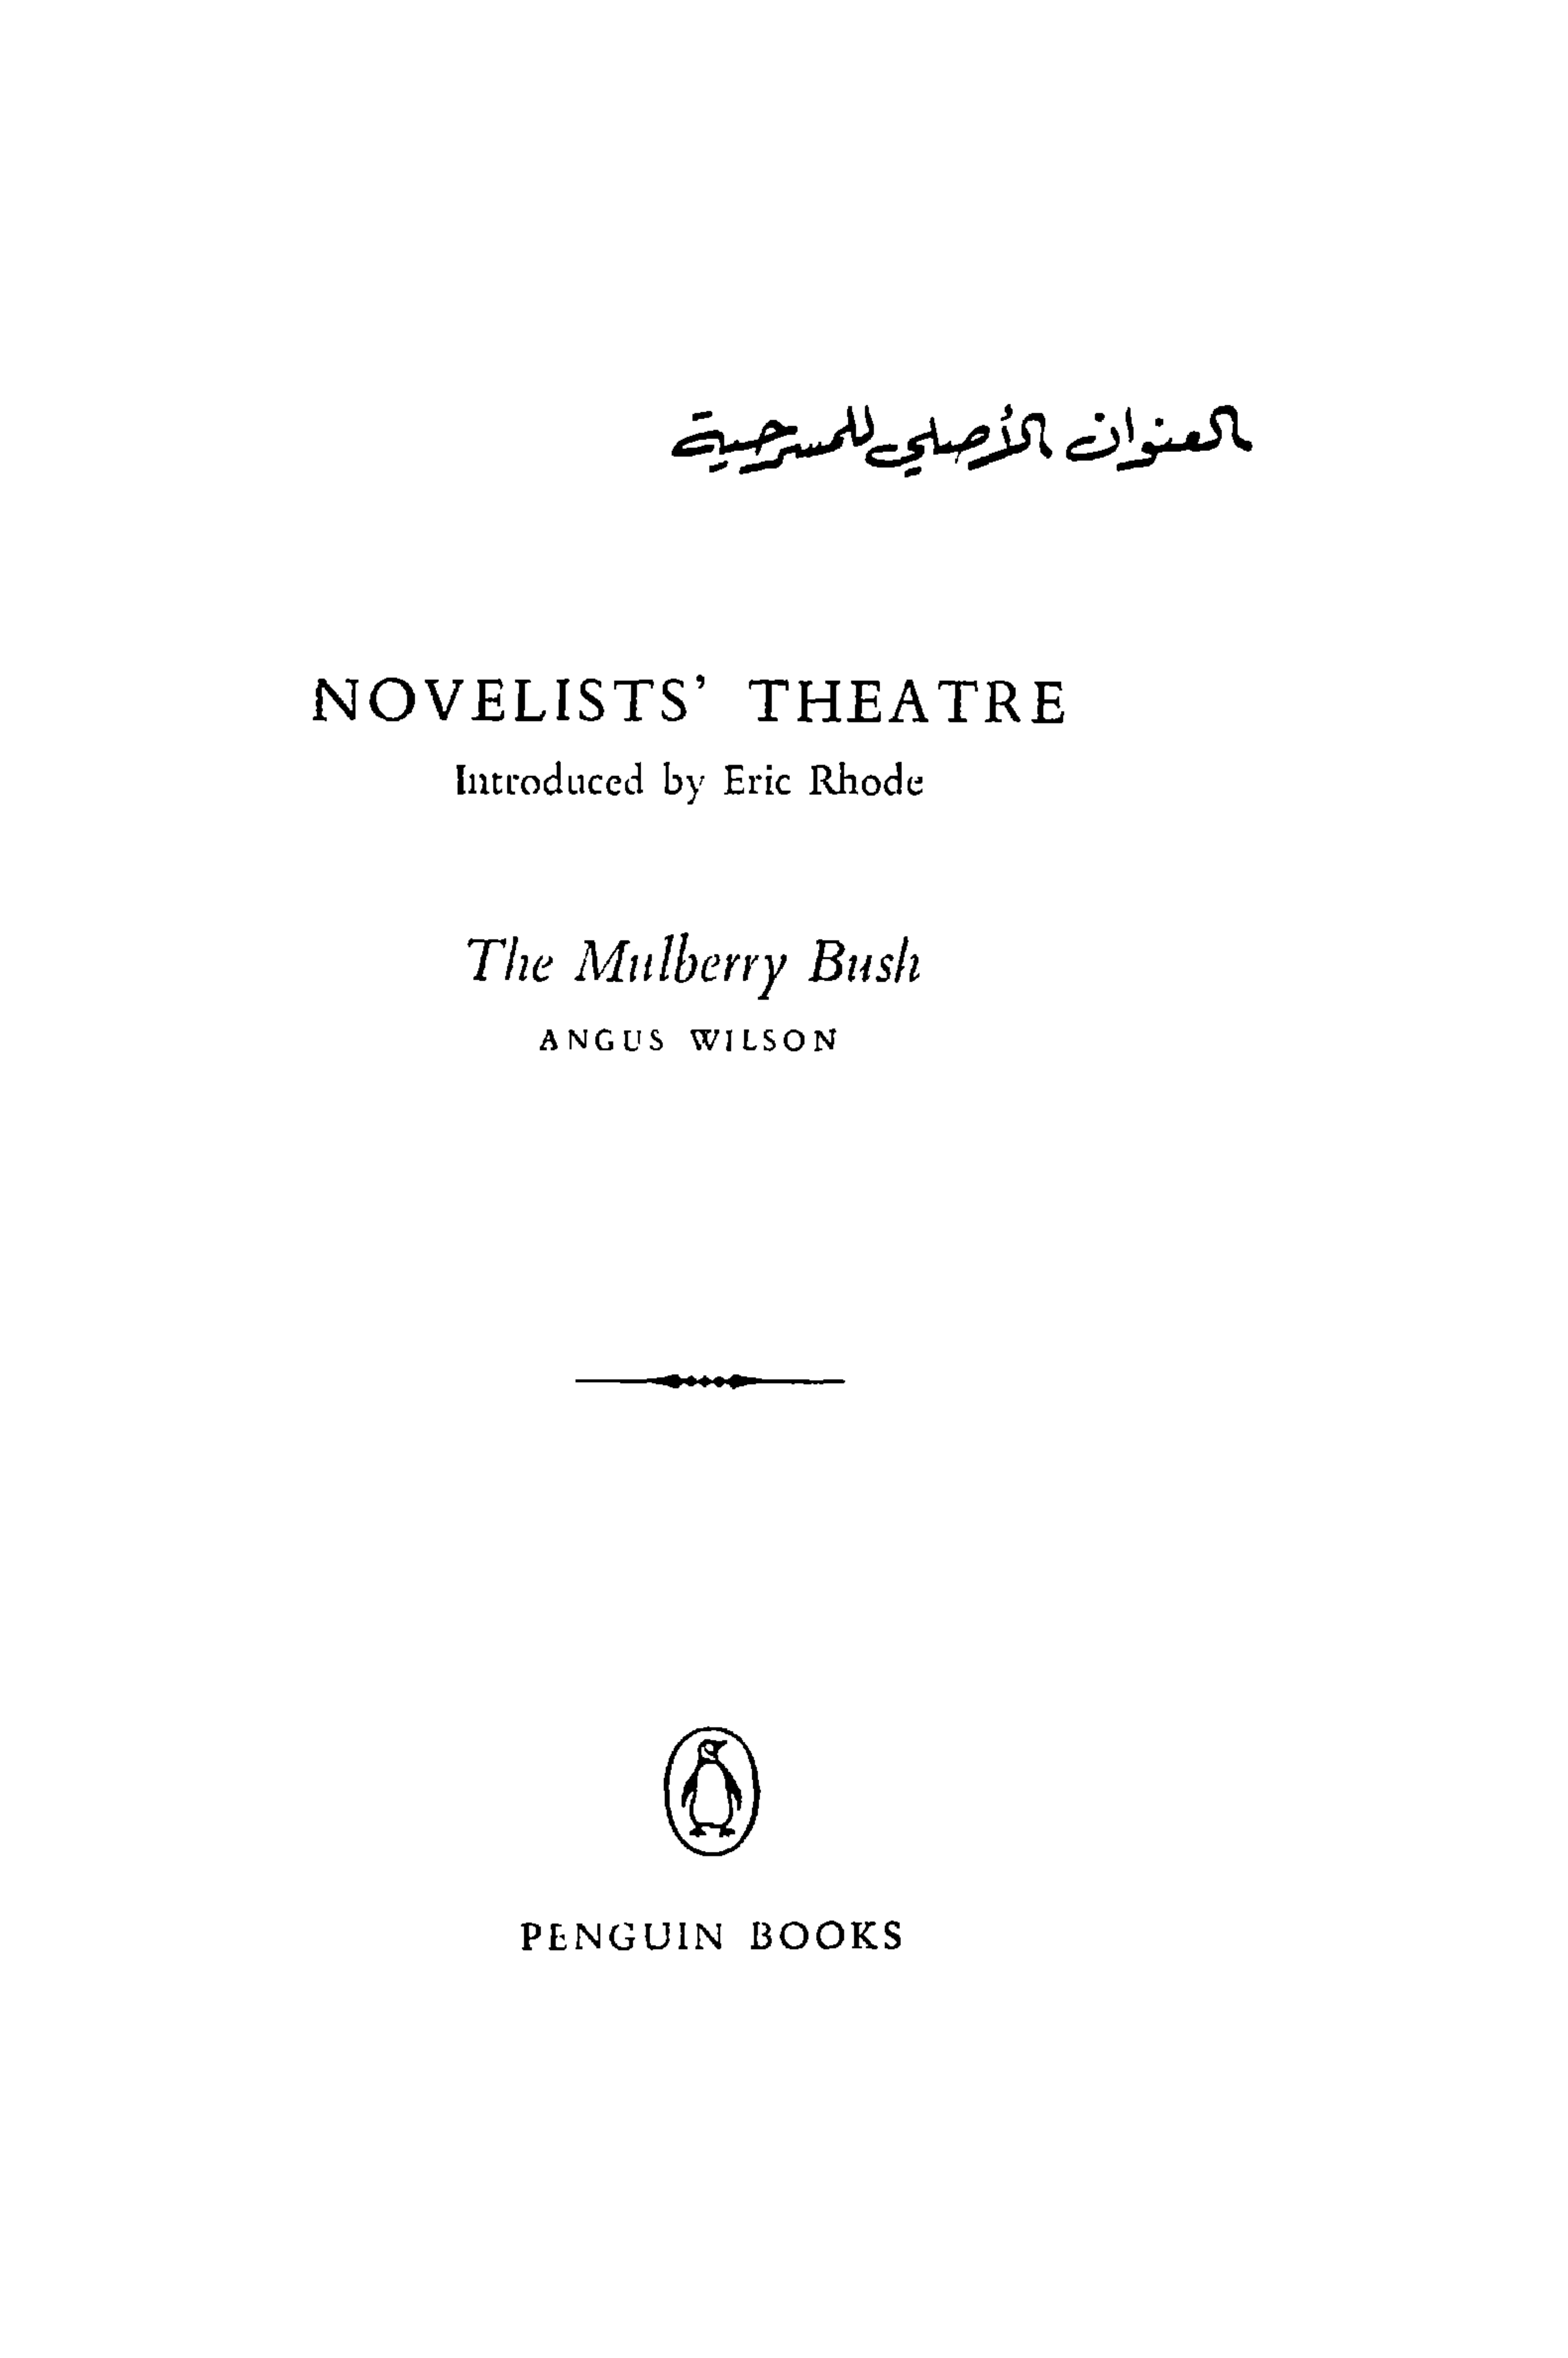 العنوان الأصلي للمسرحية
NOVELISTS' THEATRE
Introduced by Eric Rhode
The Mulberry Bush
ANGUS WILSON
PENGUIN BOOKS